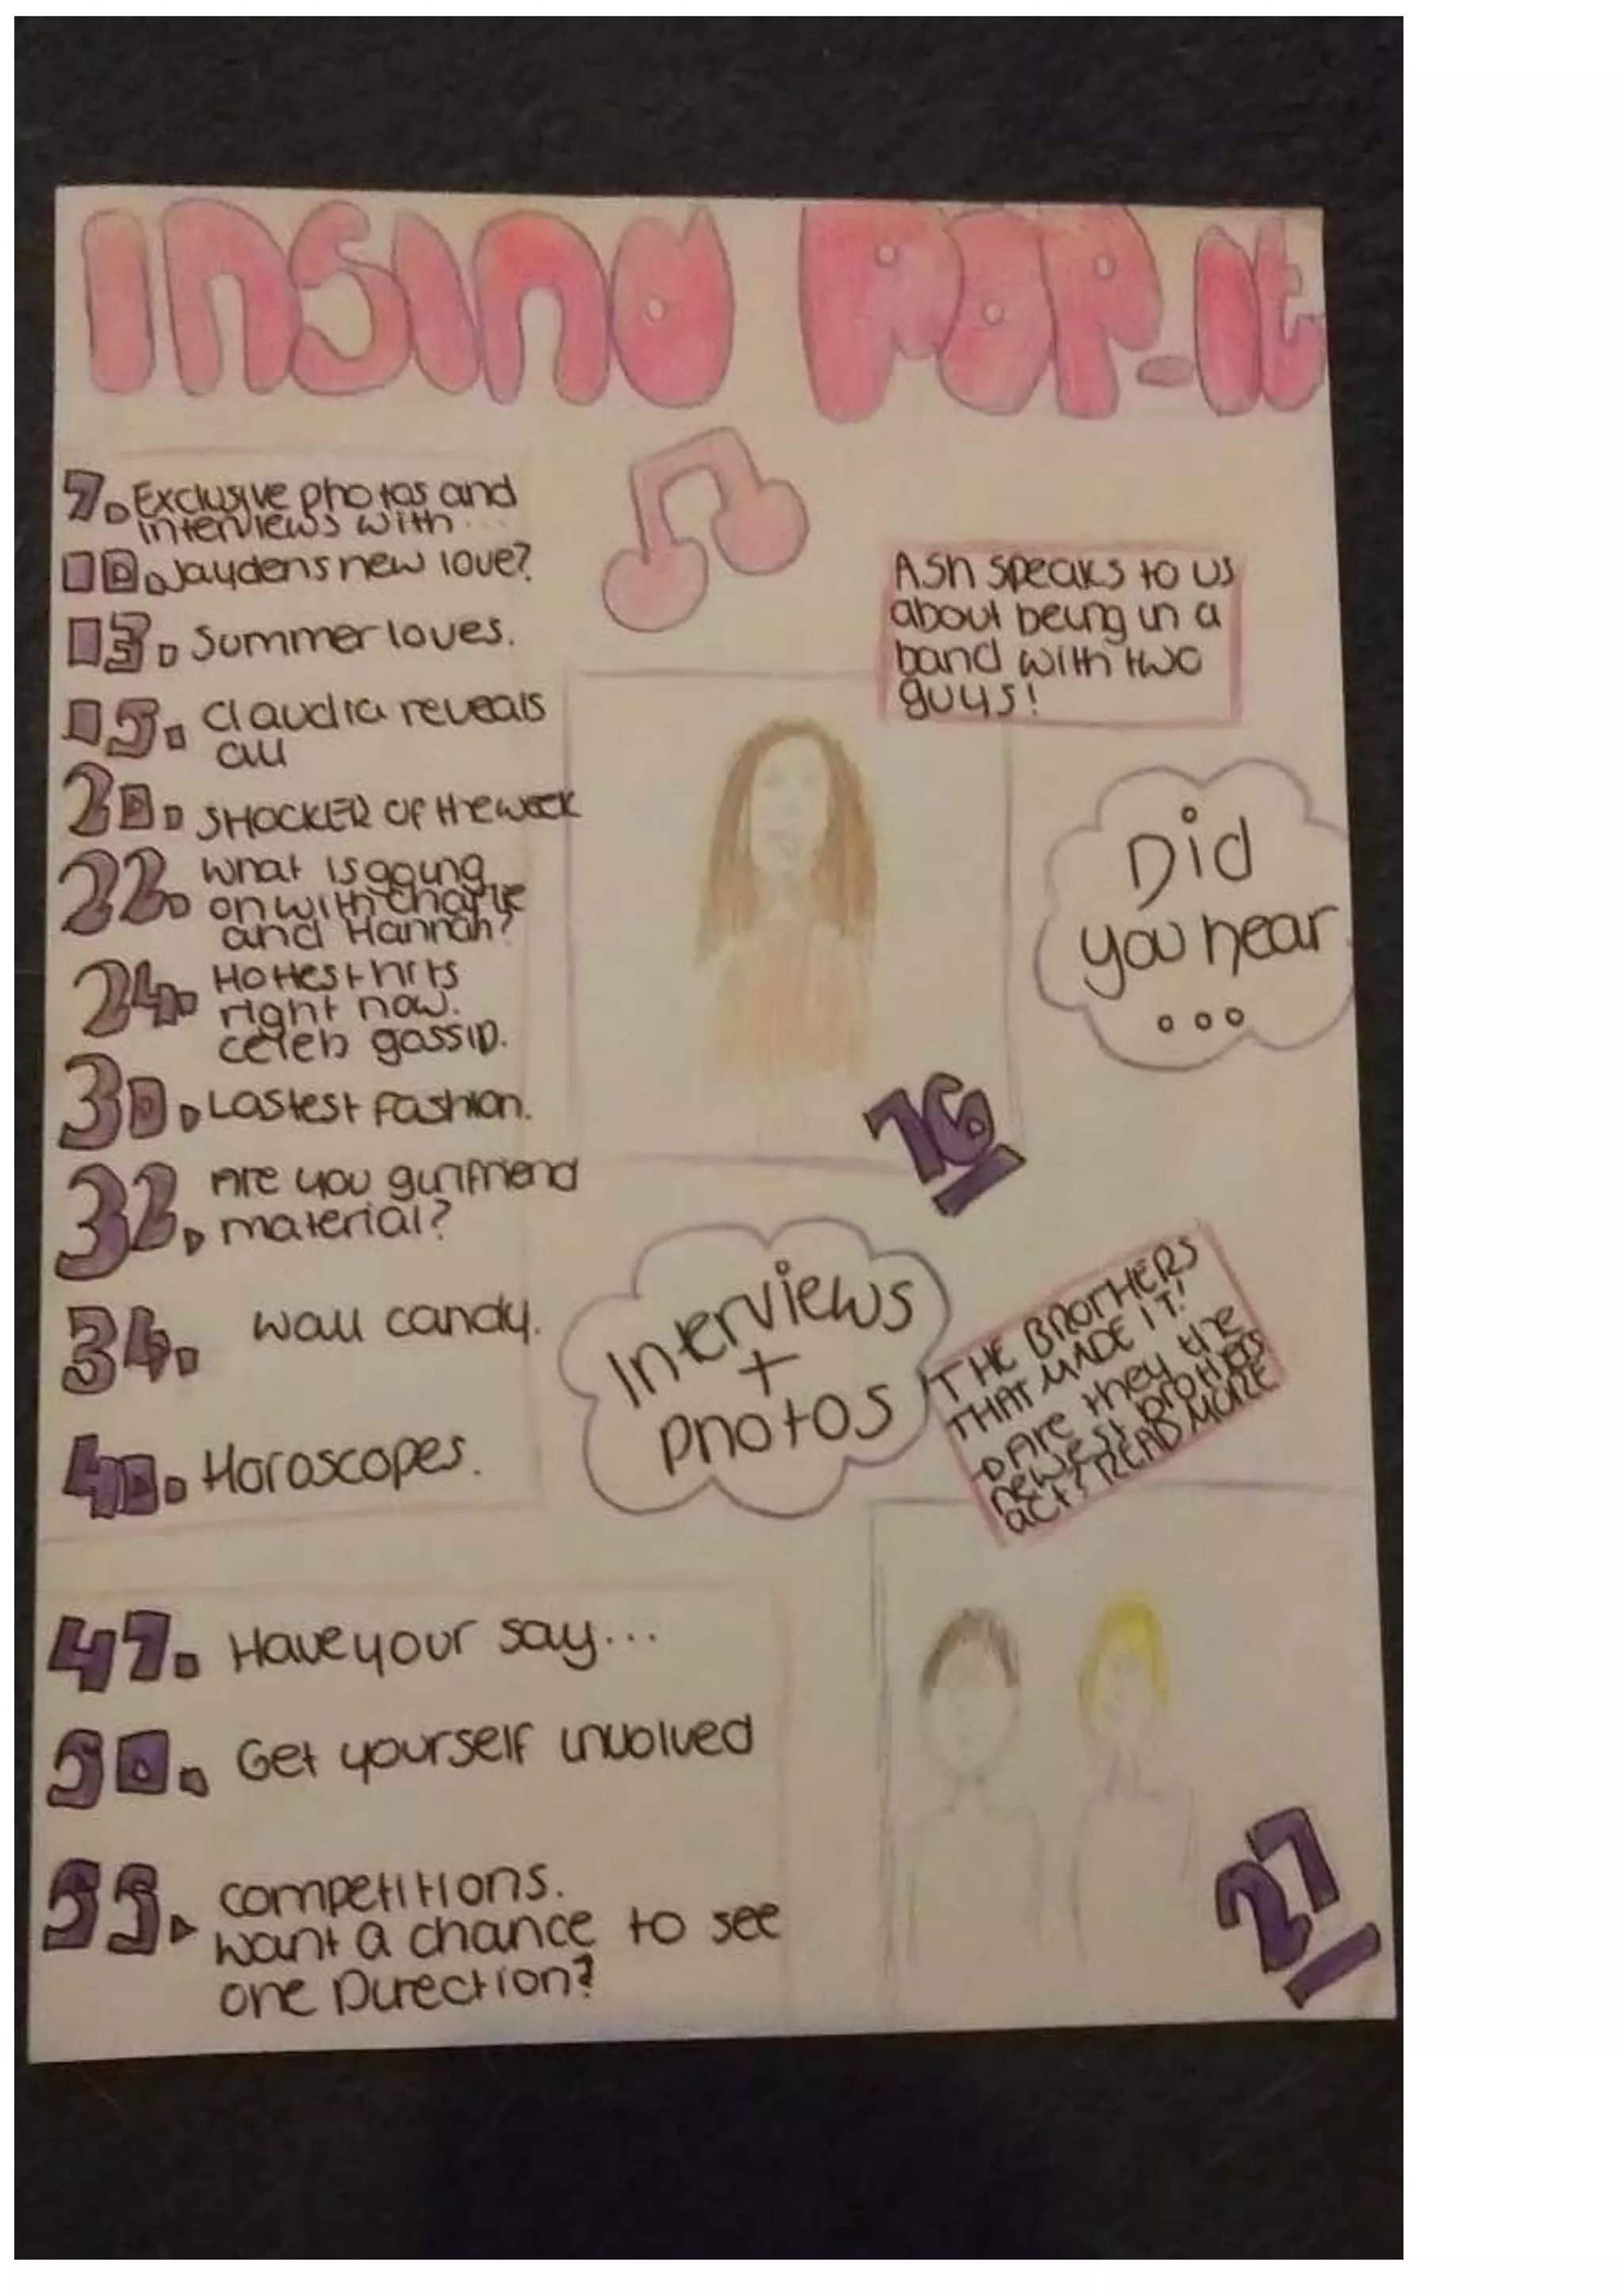 INSIND POP-it
7. Exclusive photos and
interviews with...
10. Jaydens new love?
13. Summer loves.
15. Claudia reveals
all
20. SHOCKER OF the week
22. What is going
on with Charlie
and Hannah?
24. Hottest hits
right now.
celeb gossip.
30. Lastest fashion.
32. Are you girlfriend
material?
34. wall candy.
40. Horoscopes.
47. Have your say...
50. Get yourself involved
55. competitions.
want a chance to see
one Direction?
Ash speaks to us
about being in a
band with two
guys!
Did
you hear
...
16
Interviews
+
photos
THE BROTHERS
THAT MADE IT!
Are they the
newest
act? READ MORE
27